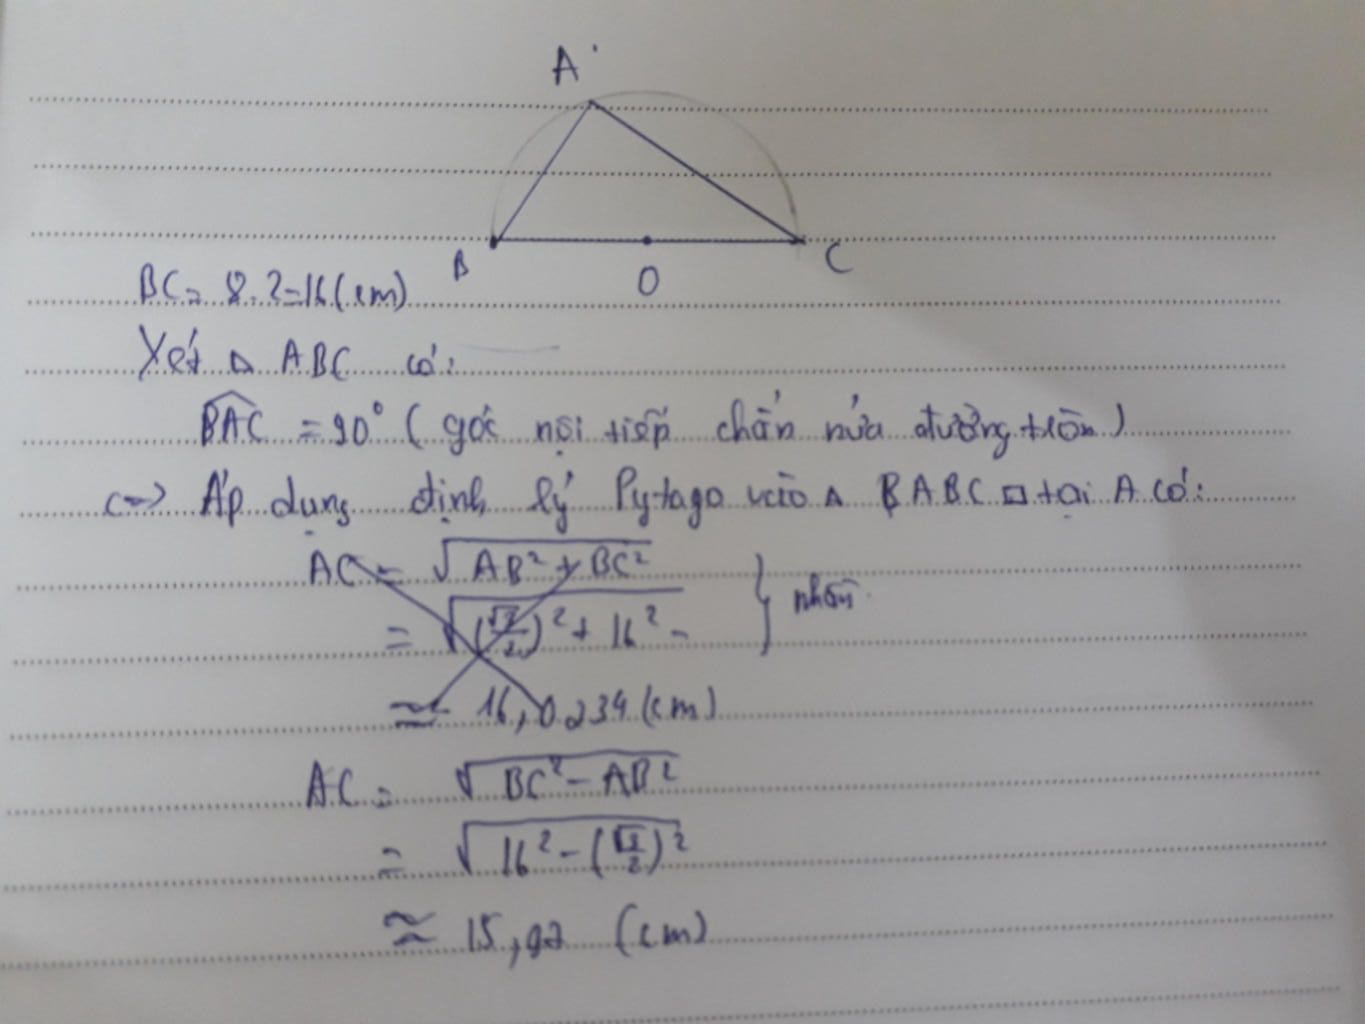 A
B
O
C
BC = 8.2=16 (cm)
Xét △ ABC có:
BAC = 90° (góc nội tiếp chắn nửa đường tròn)
=> Áp dụng định lý Pytago vào △ ABC ⊿ tại A có:
AC = √AB² + BC²
= √( /2)² + 16²
nhầm
≈ 16,0234 (cm)
AC = √BC² - AB²
= √16² - ( /2)²
≈ 15,92 (cm)